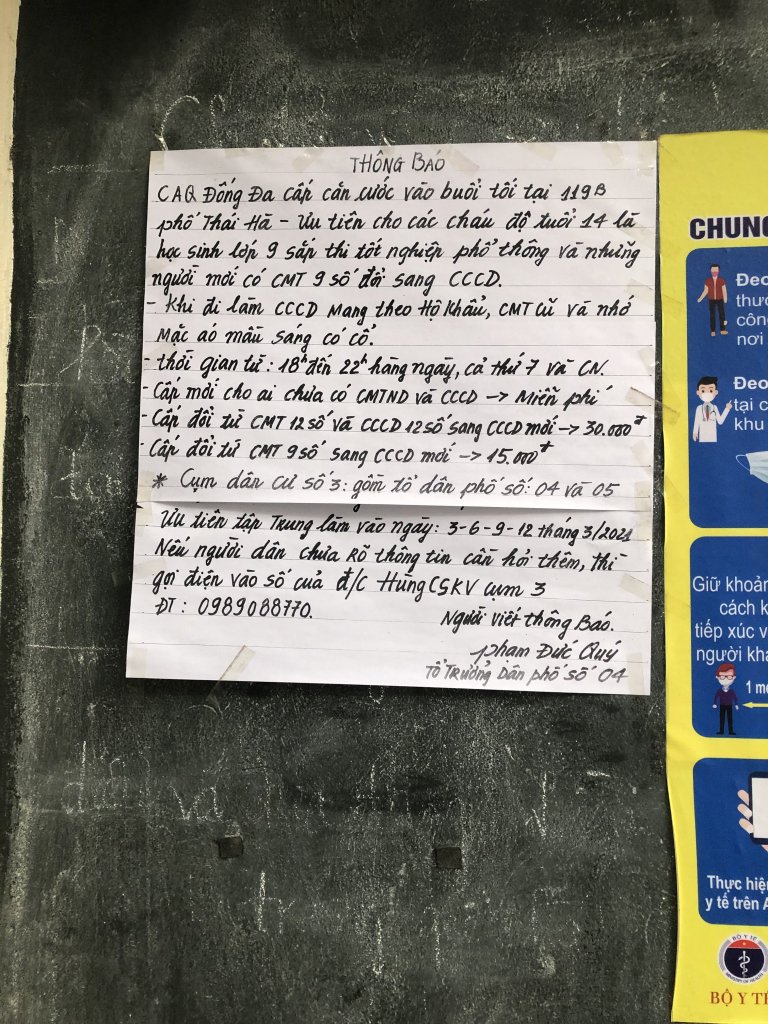 THÔNG BÁO
CAQ Đống Đa cấp căn cước vào buổi tối tại 119B
phố Thái Hà - Ưu tiên cho các cháu độ tuổi 14 là
học sinh lớp 9 sắp thi tốt nghiệp phổ thông và những
người mới có CMT 9 số đổi sang CCCD.
- Khi đi làm CCCD Mang theo Hộ Khẩu, CMT cũ và nhớ
Mặc áo mầu sáng có cổ.
- thời gian từ: 18h đến 22h hàng ngày, cả thứ 7 và CN.
- Cấp mới cho ai chưa có CMTND và CCCD → Miễn phí
- Cấp đổi từ CMT 12 số và CCCD 12 số sang CCCD mới → 30.000đ
- Cấp đổi từ CMT 9 số sang CCCD mới → 15.000đ
* Cụm dân cư số 3: gồm tổ dân phố số: 04 và 05
Ưu tiên tập Trung làm vào ngày: 3-6-9-12 tháng 3/2021
Nếu người dân chưa Rõ thông tin cần hỏi thêm, thì
gọi điện vào số của đ/c Hùng CSKV cụm 3
ĐT: 0989088770.
Người viết thông Báo.
phạm Đức Quý
Tổ Trưởng Dân phố số 04
CHUNG
Đeo
thườ
côn
nơi
Đeo
tại c
khu
Giữ khoản
cách k
tiếp xúc v
người khá
1 m
Thực hiện
y tế trên A
BỘ Y TẾ
MINISTRY OF HEALTH
BỘ Y TẾ